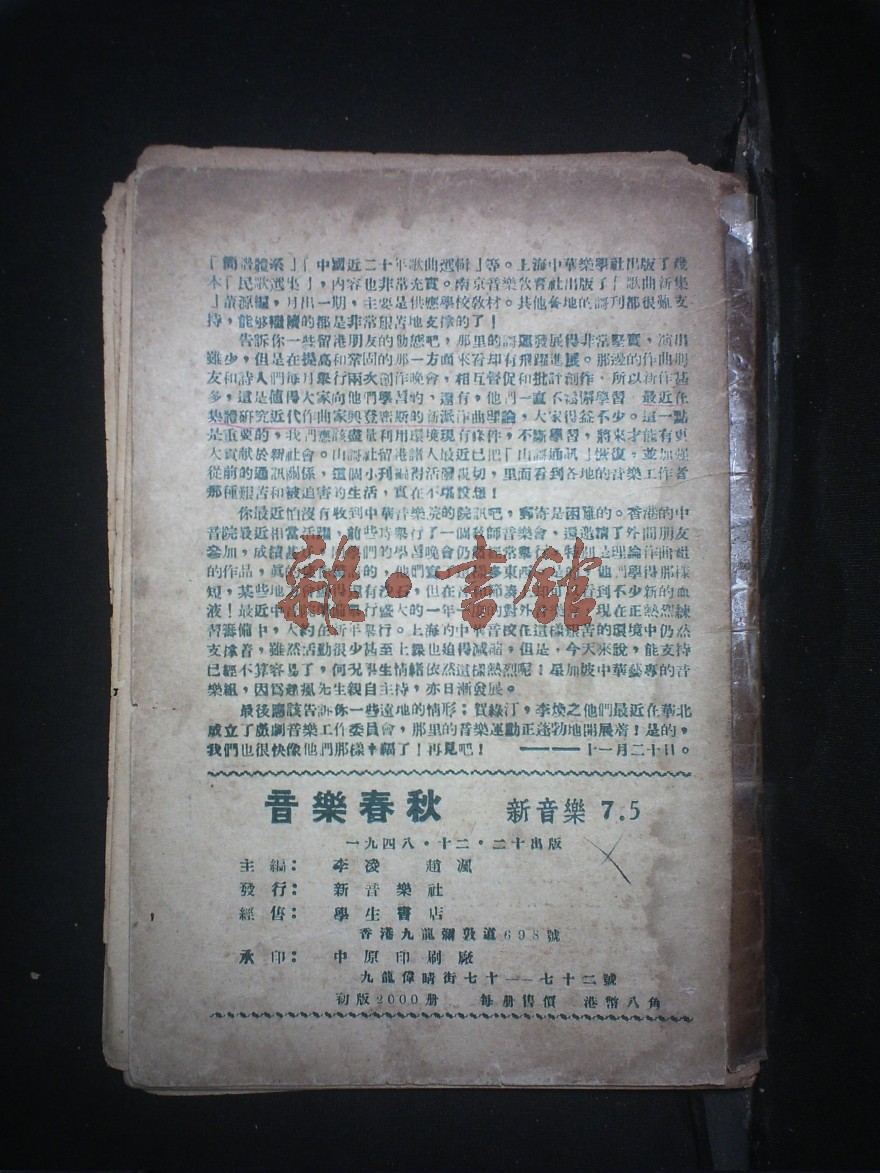 「簡譜體系」「中國近二十年歌曲選輯」等。上海中華樂學社出版了幾
本「民歌選集」,內容也非常充實。南京音樂教育社出版了「歌曲新集
」黃源編,月出一期,主要是供應學校教材。其他各地的詩刊都很難支
持,能够繼續的都是非常艱苦地支撐的了!
告訴你一些留港朋友的動態吧,那里的詩運發展得非常堅實,演出
雖少,但是在提高和鞏固的那一方面來看却有飛躍進展。那邊的作曲朋
友和詩人們每月舉行兩次創作晚會,相互督促和批評創作,所以新作甚
多,這是值得大家向他們學習的、還有,他們一直不斷學習,最近在
集體研究近代作曲家興登密斯的新派作曲理論,大家得益不少。這一點
是重要的,我們應該盡量利用環境現有條件,不斷學習,將來才能有更
大貢獻於新社會。山詩社留港諸人最近已把「山詩通訊」恢復,並加强
從前的通訊關係,這個小刊編得活潑親切,里面看到各地的音樂工作者
那種艱苦和被迫害的生活,眞在不堪設想!
你最近怕沒有收到中華音樂院的院訊吧,郵寄是困難的。香港的中
音院最近相當活躍,前些時舉行了一個敎師音樂會,還邀請了外間朋友
參加,成績甚 們的學習晚會仍 經常舉行,特別是理論作曲組
的作品,眞的 的,他們寫 這樣多東西 是 他們學得那樣
短,某些地方 還有沒 ,但在 和節奏 看到不少新的血
液!最近中 準備舉行盛大的一年一 的對外音樂 現在正熱烈練
習籌備中,大約在新年舉行。上海的中華音校在這樣艱苦的環境中仍然
支撐着,雖然活動很少甚至上課也迫得減縮,但是,今天來說,能支持
已經不算容易了,何况學生情緒依然這樣熱烈呢!星加坡中華藝專的音
樂組,因爲趙渢先生親自主持,亦日漸發展。
最後應該告訴你一些遠地的情形:賀綠汀,李煥之他們最近在華北
成立了戲劇音樂工作委員會,那里的音樂運動正蓬勃地開展着!是的,
我們也很快像他們那樣幸福了!再見吧! ———十一月二十日。
音樂春秋 新音樂 7.5
一九四八·十二·二十出版
主編: 李凌 趙渢
發行: 新音樂社
經售: 學生書店
香港九龍彌敦道698號
承印: 中原印刷廠
九龍偉晴街七十——七十二號
初版2000册 每册售價 港幣八角
雜·書館